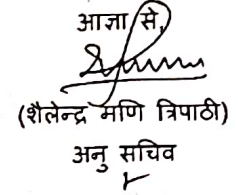 आज्ञा से,
(शैलेन्द्र मणि त्रिपाठी)
अनु सचिव